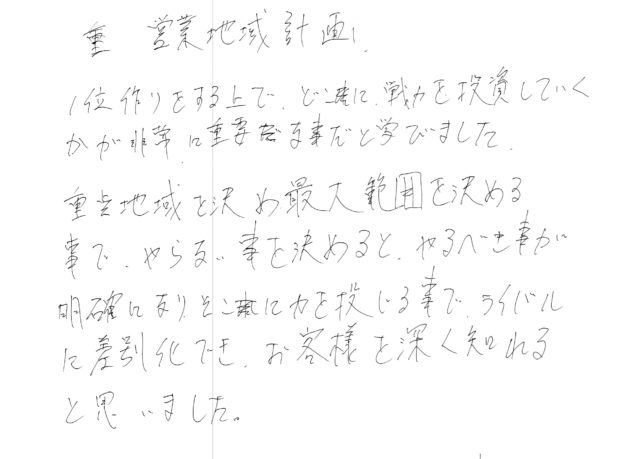 重 営業地域計画
1位作りをする上で、どこに、戦力を投資していく
かが非常に重要な事だと学びました。
重点地域を決め最大範囲を決める
事で、やらない事を決めると、やるべき事が
明確になりそこに力を投じる事で、ライバル
に差別化でき、お客様を深く知れる
と思いました。